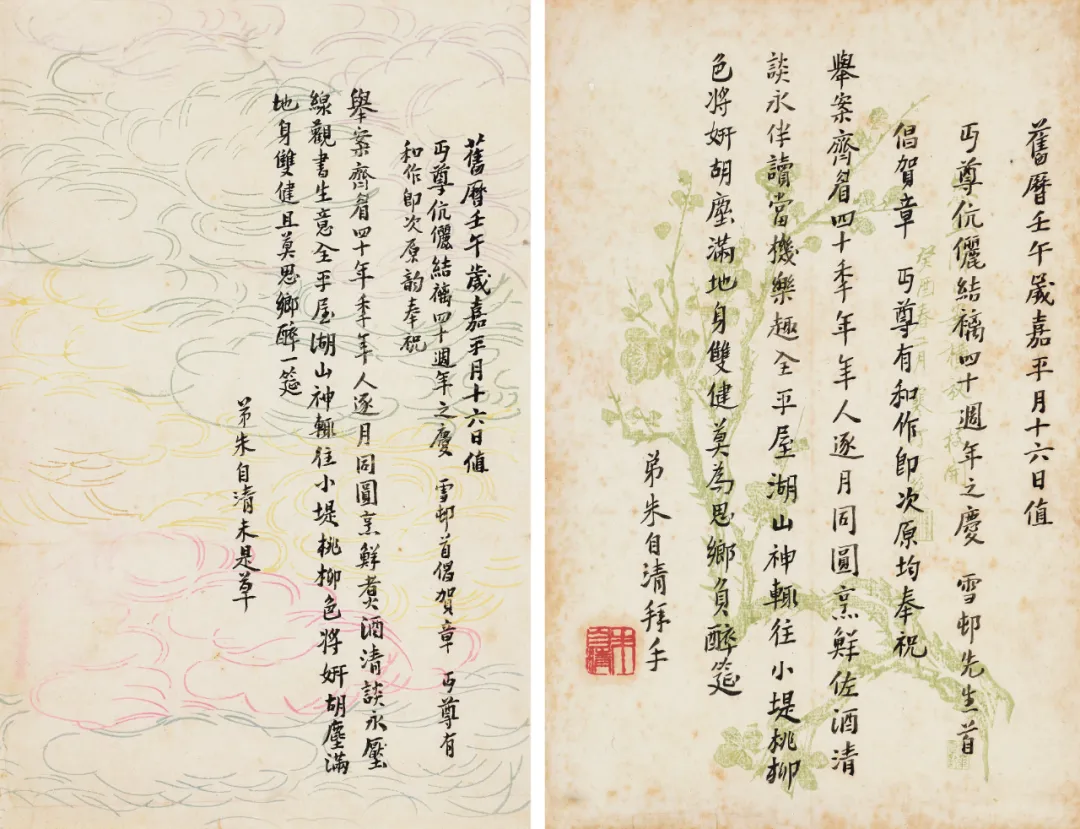 舊曆壬午歲嘉平月十六日值
丏尊伉儷結褵四十週年之慶 雪邨首倡賀章 丏尊有
和作即次原韵奉祝
舉案齊眉四十年季年人逐月同圓烹鮮煮酒清談永壓
線觀書生意全平屋湖山神輒往小堤桃柳色將妍胡塵滿
地身雙健且莫思鄉醉一筵
弟朱自清未是草
舊曆壬午歲嘉平月十六日值
丏尊伉儷結褵四十週年之慶 雪邨先生首
倡賀章 丏尊有和作即次原均奉祝
舉案齊眉四十季年年人逐月同圓烹鮮佐酒清
談永伴讀當機樂趣全平屋湖山神輒往小堤桃柳
色將妍胡塵滿地身雙健莫為思鄉負醉筵
弟朱自清拜手
朱自清
癸酉春二月